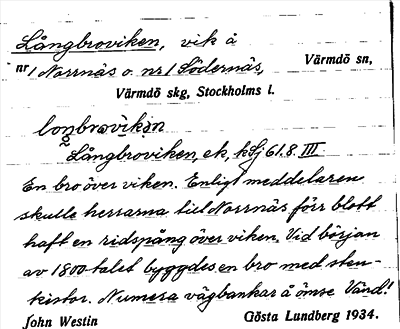 Långbroviken, vik å
nr 1 Norrnäs o. nr 1 Södernäs, Värmdö sn,
Värmdö skg, Stockholms l.
Långbroviken, ek, kSj 61.8. III
En bro över viken. Enligt meddelaren
skulle herrarna till Norrnäs förr blott
haft en ridspång över viken. Vid början
av 1800 talet byggdes en bro med sten-
kistor. Numera vägbankar å ömse Vänd!
John Westin Gösta Lundberg 1934.